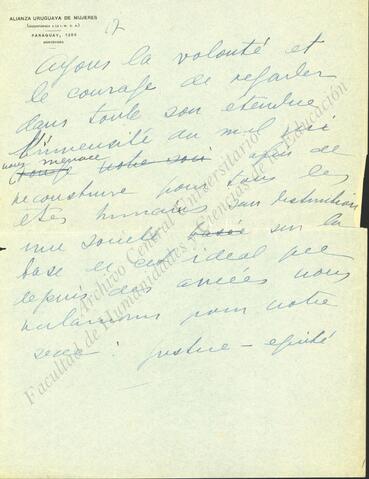 ALIANZA URUGUAYA DE MUJERES
PARAGUAY, 1286
MONTEVIDEO
17
ayons la volonté et
le courage de regarder
dans toute son étendue
l'immensité du mal qui
nous menace
afin de
reconstruire pour tous les
etres humains sans distinction
une société basée sur la
base de cet idéal que
depuis des années nous
reclamons pour notre
sexe : justice - equité
Archivo Central Universitario
Facultad de Humanidades y Ciencias de la Educación